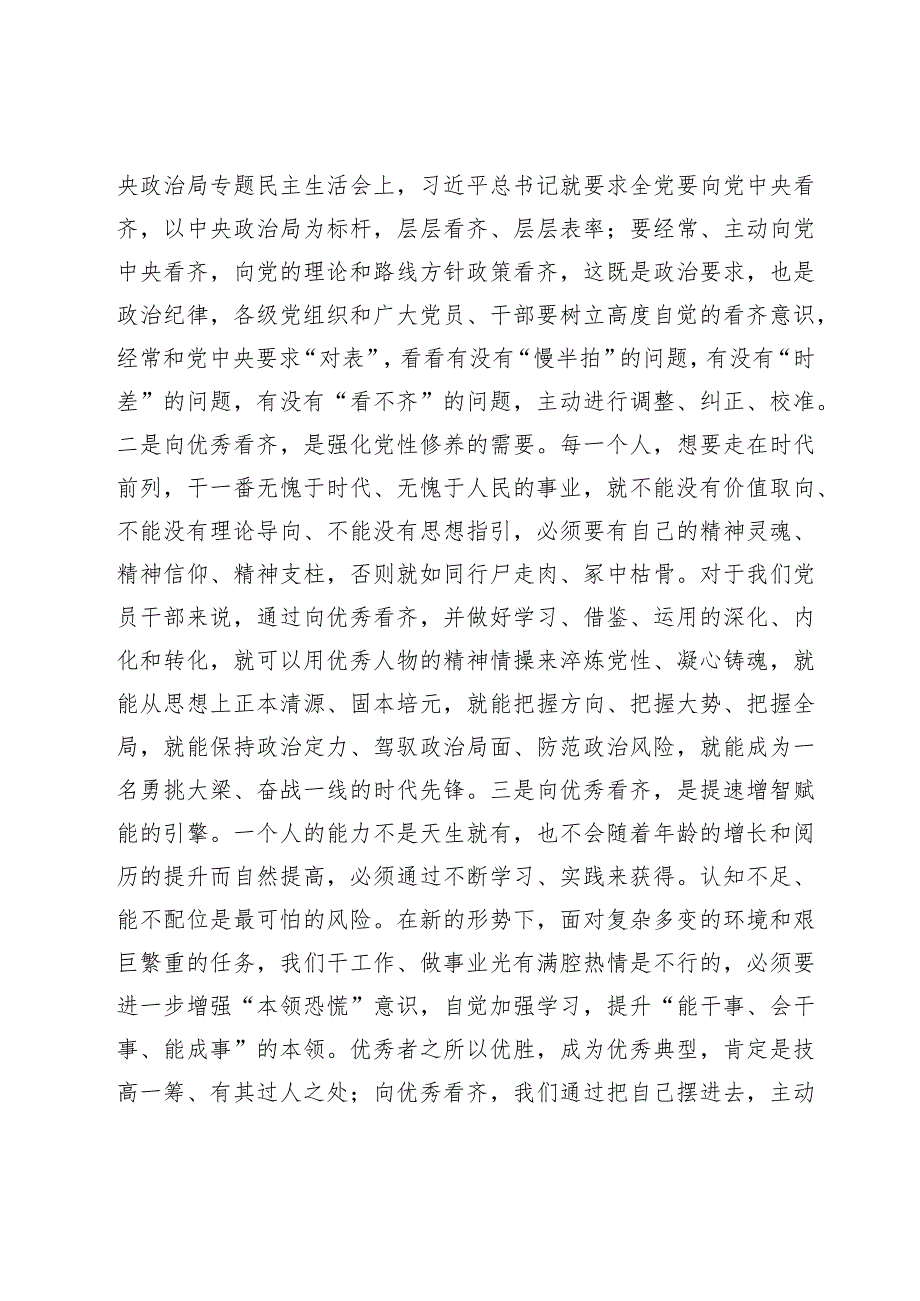 央政治局专题民主生活会上，习近平总书记就要求全党要向党中央看
齐，以中央政治局为标杆，层层看齐、层层表率；要经常、主动向党
中央看齐，向党的理论和路线方针政策看齐，这既是政治要求，也是
政治纪律，各级党组织和广大党员、干部要树立高度自觉的看齐意识，
经常和党中央要求“对表”，看看有没有“慢半拍”的问题，有没有“时
差”的问题，有没有“看不齐”的问题，主动进行调整、纠正、校准。
二是向优秀看齐，是强化党性修养的需要。每一个人，想要走在时代
前列，干一番无愧于时代、无愧于人民的事业，就不能没有价值取向、
不能没有理论导向、不能没有思想指引，必须要有自己的精神灵魂、
精神信仰、精神支柱，否则就如同行尸走肉、冢中枯骨。对于我们党
员干部来说，通过向优秀看齐，并做好学习、借鉴、运用的深化、内
化和转化，就可以用优秀人物的精神情操来淬炼党性、凝心铸魂，就
能从思想上正本清源、固本培元，就能把握方向、把握大势、把握全
局，就能保持政治定力、驾驭政治局面、防范政治风险，就能成为一
名勇挑大梁、奋战一线的时代先锋。三是向优秀看齐，是提速增智赋
能的引擎。一个人的能力不是天生就有，也不会随着年龄的增长和阅
历的提升而自然提高，必须通过不断学习、实践来获得。认知不足、
能不配位是最可怕的风险。在新的形势下，面对复杂多变的环境和艰
巨繁重的任务，我们干工作、做事业光有满腔热情是不行的，必须要
进一步增强“本领恐慌”意识，自觉加强学习，提升“能干事、会干
事、能成事”的本领。优秀者之所以优胜，成为优秀典型，肯定是技
高一筹、有其过人之处；向优秀看齐，我们通过把自己摆进去，主动